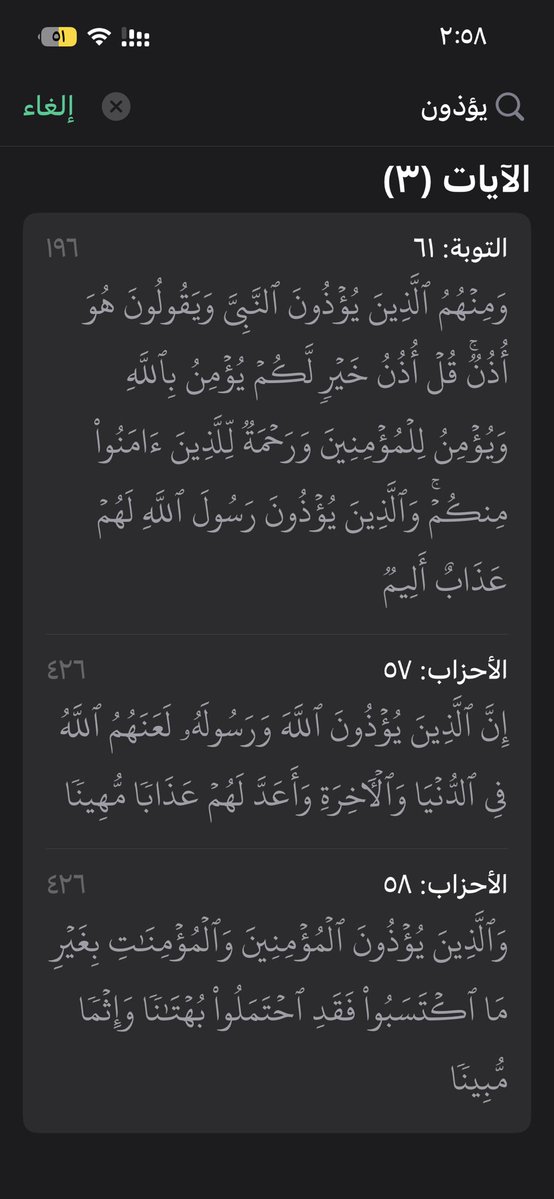 ٢:٥٨
٥١
يؤذون
إلغاء
الآيات (٣)
التوبة: ٦١
١٩٦
وَمِنۡهُمُ ٱلَّذِينَ يُؤۡذُونَ ٱلنَّبِيَّ وَيَقُولُونَ هُوَ
أُذُنٞۚ قُلۡ أُذُنُ خَيۡرٖ لَّكُمۡ يُؤۡمِنُ بِٱللَّهِ
وَيُؤۡمِنُ لِلۡمُؤۡمِنِينَ وَرَحۡمَةٞ لِّلَّذِينَ ءَامَنُواْ
مِنكُمۡۚ وَٱلَّذِينَ يُؤۡذُونَ رَسُولَ ٱللَّهِ لَهُمۡ
عَذَابٌ أَلِيمٞ
الأحزاب: ٥٧
٤٢٦
إِنَّ ٱلَّذِينَ يُؤۡذُونَ ٱللَّهَ وَرَسُولَهُۥ لَعَنَهُمُ ٱللَّهُ
فِي ٱلدُّنۡيَا وَٱلۡأٓخِرَةِ وَأَعَدَّ لَهُمۡ عَذَابٗا مُّهِينٗا
الأحزاب: ٥٨
٤٢٦
وَٱلَّذِينَ يُؤۡذُونَ ٱلۡمُؤۡمِنِينَ وَٱلۡمُؤۡمِنَٰتِ بِغَيۡرِ
مَا ٱكۡتَسَبُواْ فَقَدِ ٱحۡتَمَلُواْ بُهۡتَٰنٗا وَإِثۡمٗا
مُّبِينٗا